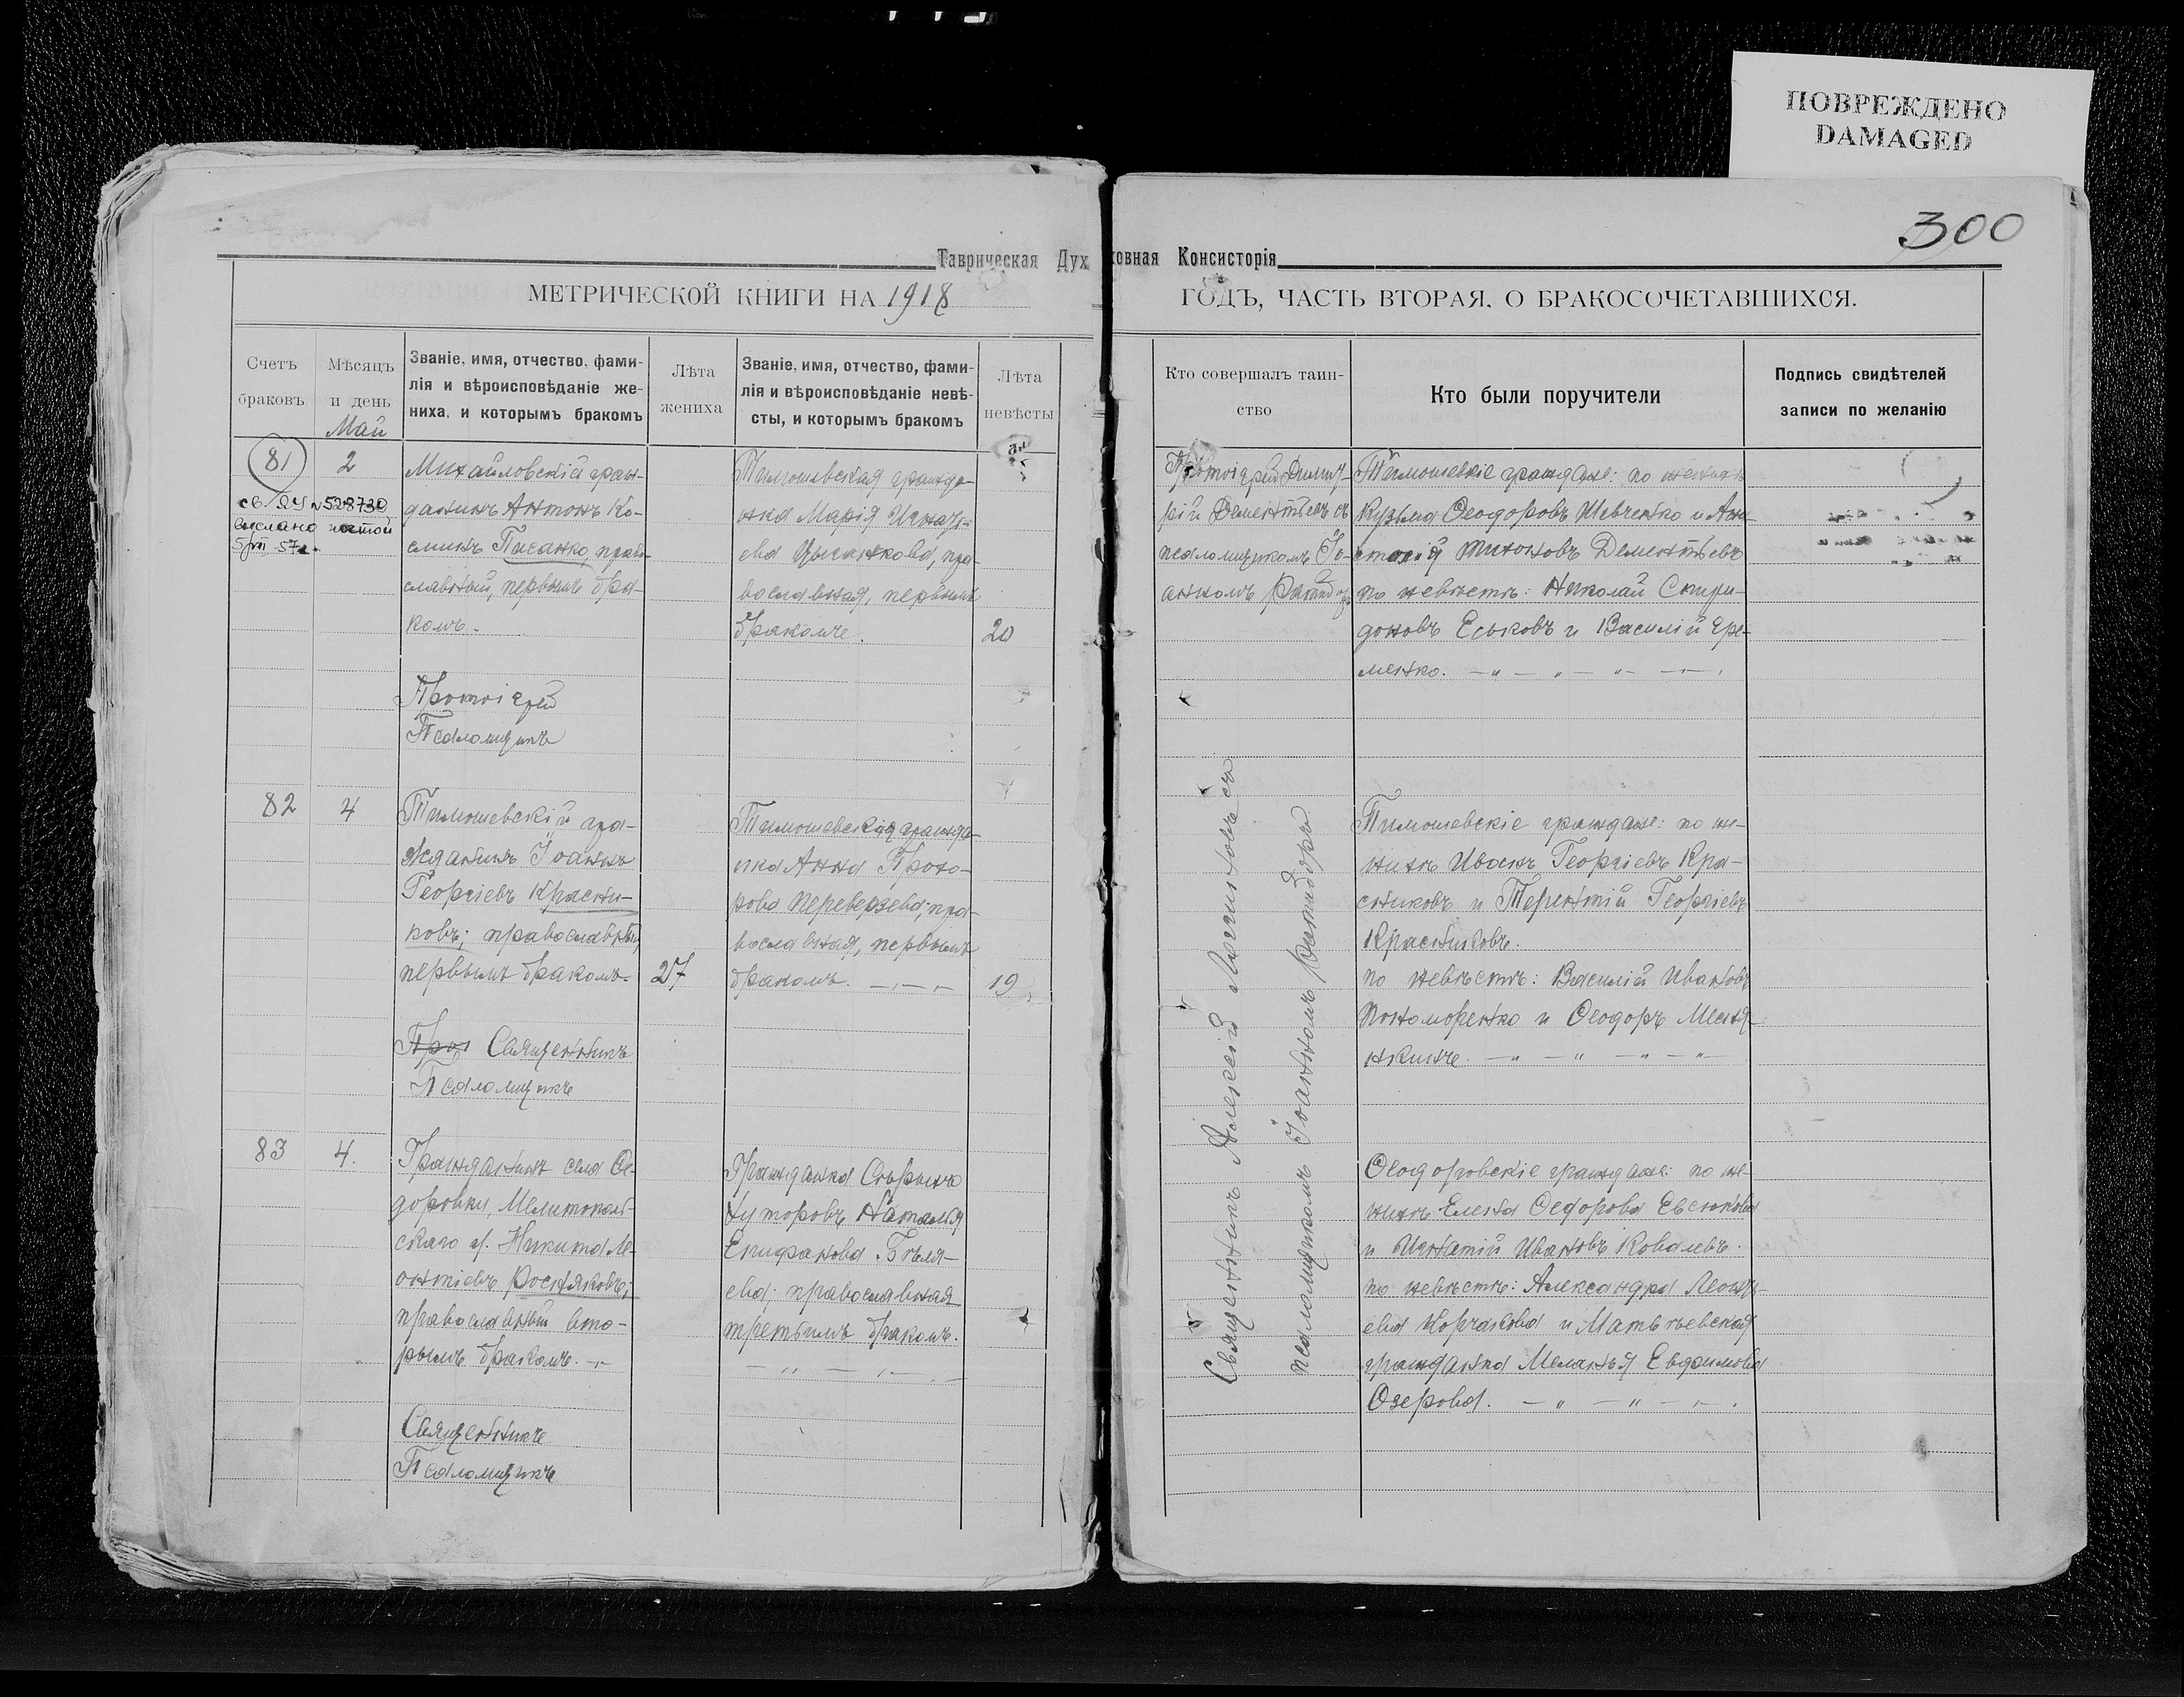 ПОВРЕЖДЕНО
DAMAGED
300
Таврическая Духовная Консисторія
МЕТРИЧЕСКОЙ КНИГИ НА 1918 ГОДЪ, ЧАСТЬ ВТОРАЯ. О БРАКОСОЧЕТАВШИХСЯ.
Счетъ
браковъ
Мѣсяцъ
и день
Май
Званіе, имя, отчество, фами-
лія и вѣроисповѣданіе же-
ниха, и которымъ бракомъ
Лѣта
жениха
Званіе, имя, отчество, фами-
лія и вѣроисповѣданіе невѣ-
сты, и которымъ бракомъ
Лѣта
невѣсты
Кто совершалъ таин-
ство
Кто были поручители
Подпись свидѣтелей
записи по желанію
81
2
Михайловскій граж-
данинъ Антонъ Ко-
сминъ Писанко, право-
славный, первымъ бра-
комъ.
Тимошевская гражда-
нка Марія Игнать-
ева Цыганкова, пра-
вославная, первымъ
бракомъ.
20
Протоіерей Димит-
рій Дементьевъ съ
псаломщикомъ Іо-
анномъ
Тимошевкіе граждане: по жениху
Кузьма Ѳеодоровъ Шевченко и Ана-
стасій Тихоновъ Дементьевъ
по невѣстѣ: Николай Спири-
доновъ Еськовъ и Василій Ере-
менко.
Протоіерей
Псаломщикъ
82
4
Тимошевскій гра-
жданинъ Іоаннъ
Георгіевъ Красни-
ковъ; православный,
первымъ бракомъ.
27
Тимошевская гражда-
нка Анна Прохо-
рова Переверзева; пра-
вославная, первымъ
бракомъ.
19
Тимошевскіе граждане: по же-
нихѣ Иванъ Георгіевъ Кра-
сниковъ и Терентій Георгіевъ
Красниковъ.
по невѣстѣ: Василій Ивановъ
Пономоренко и Ѳеодоръ Меня-
нкинъ.
Священникъ
Псаломщикъ
83
4.
Гражданинъ села Ѳе-
доровки, Мелитополь-
скаго у. Никита Ле-
онтіевъ Росняковъ;
православный вто-
рымъ бракомъ.
Гражданка Сѣрыхъ
Хуторовъ Наталія
Епифанова Бѣля-
ева; православная
третьимъ бракомъ.
Ѳеодоровскіе граждане: по же-
нихѣ Елена Ѳедорова Евсюкова
и Игнатій Ивановъ Ковалевъ.
по невѣстѣ: Александра Леонть-
ева Корчакова и Матвѣевская
гражданка Меланья Евфимова
Озерова.
Священникъ
Псаломщикъ
Священникъ Алексій
псаломщикомъ Іоанномъ